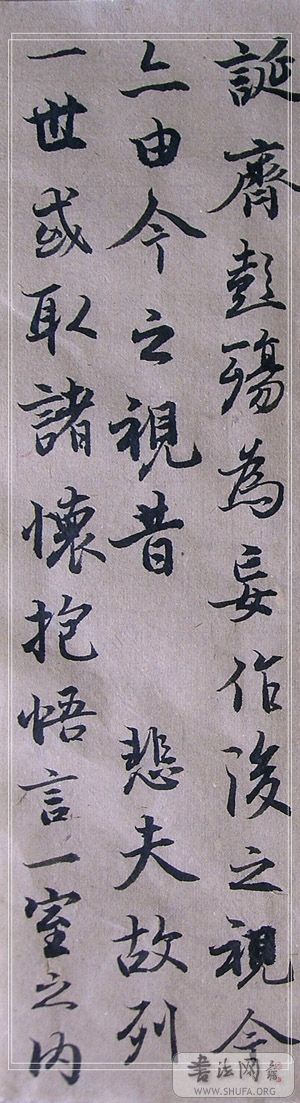 誕齊彭殤為妄作後之視今
亦由今之視昔 悲夫故列
一世或取諸懷抱悟言一室之内
書法网
WWW.SHUFA.ORG